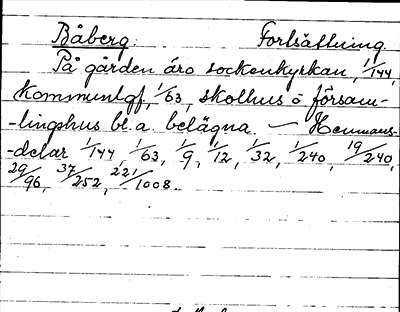 Båberg. Fortsättning.
På gården äro sockenkyrkan, 1/144,
kommunlgf, 1/63, skolhus o försam-
-lingshus bl. a. belägna. — Hemmans-
-delar 1/144, 1/63, 1/9, 1/12, 1/32, 1/240, 19/240,
29/96, 37/252, 221/1008.